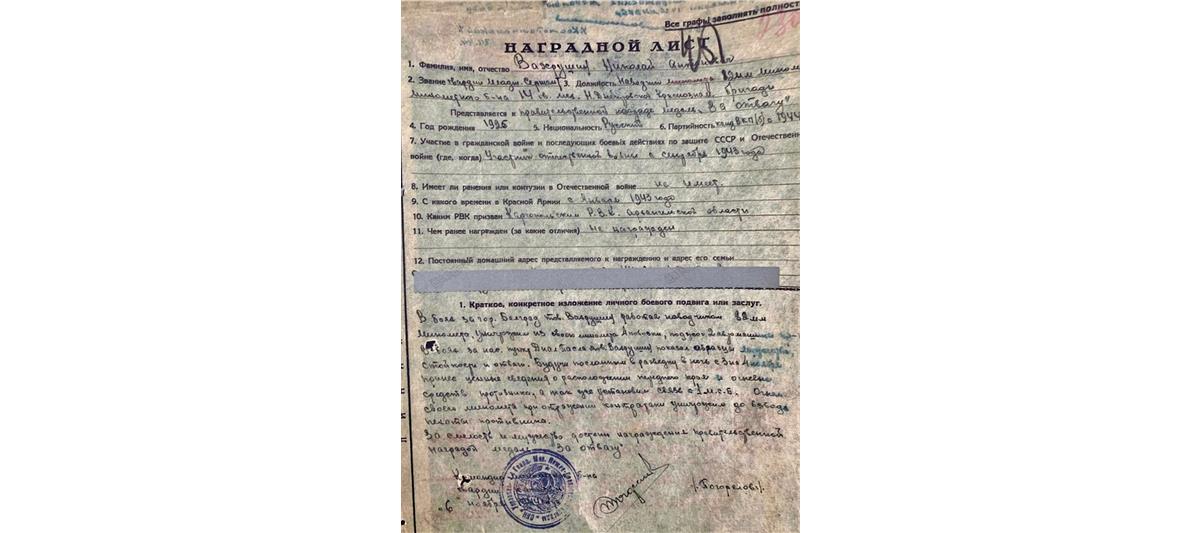 Все графы заполнять полност
НАГРАДНОЙ ЛИСТ
1. Фамилия, имя, отчество Вахрушин Николай
2. Звание Гвардии Младш. Сержант 3. Должность Наводчик миномета 82мм мином
минометного б-на 14 гв. мех. Бригады
Представляется к правительственной награде медаль „За отвагу"
4. Год рождения 1925 5. Национальность Русский 6. Партийность канд ВКП(б) с 1944
7. Участие в гражданской войне и последующих боевых действиях по защите СССР и Отечествен
войне (где, когда) Участник отечественной войны с сентября 1943 года
8. Имеет ли ранения или контузии в Отечественной войне не имеет.
9. С какого времени в Красной Армии с Января 1943 года
10. Каким РВК призван Каргопольским Р.В.К. Архангельской области
11. Чем ранее награжден (за какие отличия) Не награжден
12. Постоянный домашний адрес представляемого к награждению и адрес его семьи
1. Краткое, конкретное изложение личного боевого подвига или заслуг.
В боях за гор. Белград тов. Вахрушин работая наводчиком 82мм
миномета, уничтожил из своего миномета
в боях за нас. пункт тов Вахрушин показал образцы
стойкости и отваги. Будучи посланным в разведку в ночь с 3 на 4
принес ценные сведения о расположении переднего края и огневых
средств противника, а так же установил связь с 1 м.с.б. Огнем
своего миномета при отражении контратаки уничтожено до взвода
пехоты противника.
За смелость и мужество достоин награждения правительственной
наградой медаль „За отвагу"
Командир б-на
Гвардии
„6" ноября /Погорелов/.